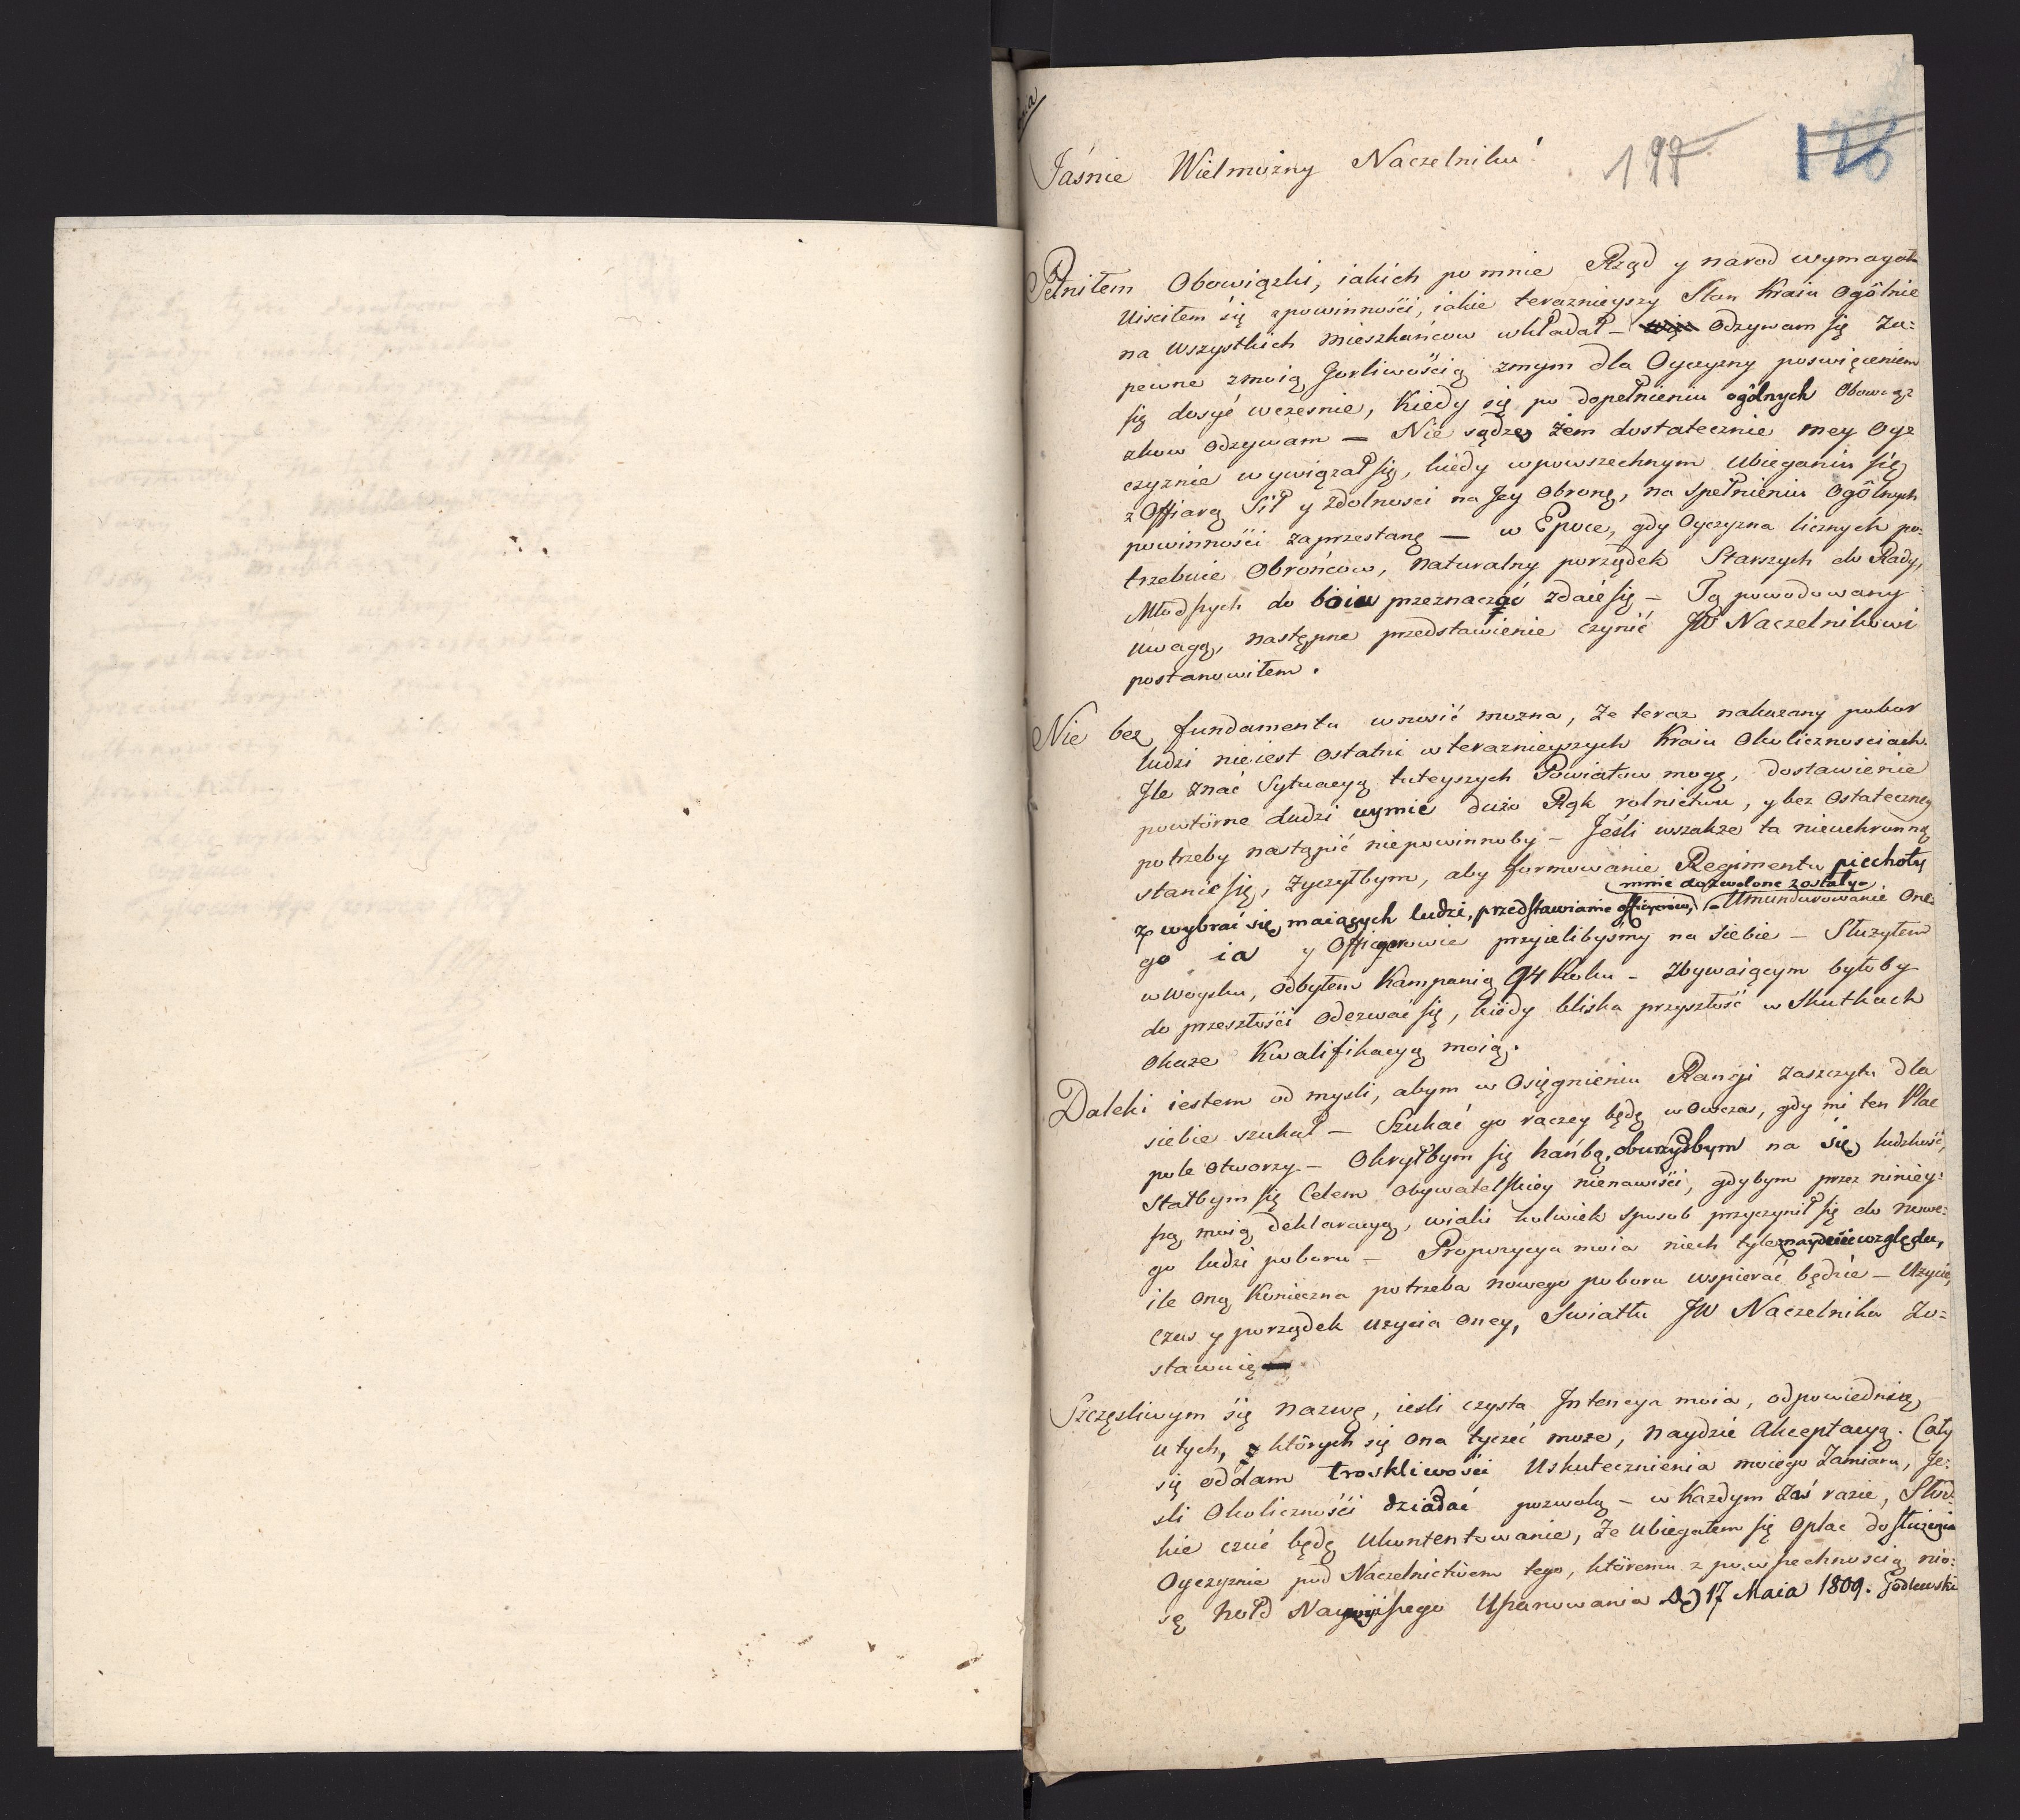 197. 126
Jaśnie Wielmożny Naczelniku!
Pełniłem Obowiązki, iakich po mnie Rząd y narod wymagał
Uiściłem się z powinności, iakie teraznieyszy Stan Kraiu Ogólnie
na Wszystkich Mieszkańcow wkładał – Odzywam się Za:
pewne z moią Gorliwością z mym dla Oyczyzny poswięceniem
się dosyć wczesnie, Kiedy się po dopełnieniu ogólnych Obowią:
zkow Odzywam – Nie sądzę żem dostatecznie mey Oy:
czyznie wywiązał się, kiedy w powszechnym Ubieganiu się
z Offiarą Sił y zdolnosci na Jey Obronę, na Spełnieniu Ogólnych
powinności zaprzestanę – w Epoce, gdy Oyczyzna licznych po:
trzebuie Obrońcow, Naturalny porządek Starszych do Rady,
Młodszych do boiu przeznaczać zdaie się – Tą powodowany
Uwagą, następne przedstawienie czynić JW Naczelnikowi
postanowiłem.
Nie bez fundamentu wnosić mozna, że teraz nakazany pobor
ludzi nie iest Ostatni w teraznieyszych Kraiu Okolicznosciach.
Jle znać Sytuacyą tuteyszych Powiatow mogę, dostawienie
powtórne Ludzi uymie dużo Rąk rolnictwu, y bez Ostateczney
potrzeby nastąpić niepowinnoby – Jeśli wszakże ta nieuchronną
stanie się, życzyłbym, aby formowanie Regimentu piechoty
mnie dozwolone zostały
z wybrać się maiących ludzi, przedstawianie officyerów, – Umundurowanie One:
go ia y Officyerowie przyielibyśmy na siebie – Służyłem
w Woysku, Odbyłem Kampanią 94 Roku – Zbywaiącym byłoby
do przeszłości Odezwać się, kiedy bliska przyszłość w Skutkach
Okaze Kwalifikacyą moią.
Daleki iestem od mysli, abym w Osiągnieniu Rangi zaszczytu dla
siebie szukał – Szukać go raczey będę w Owczas, gdy mi ten Plac
pole Otworzy – Okryłbym się hańbą, oburzyłbym na się ludzkość,
Stałbym się Celem Obywatelskiey nienawiści, gdybym przez niniey:
szą moią deklaracyą, w iaki kolwiek sposob przyczynił się do nowe:
go ludzi poboru – Propozycya moia niech tyle znaydzie względu,
ile Oną Konieczna potrzeba nowego poboru wspierać będzie – Uzycie,
Czas y porządek uzycia Oney, Swiatłu JW Naczelnika Zo=
stawuię
Szczęsliwym się nazwę, iesli czysta Jntencya moia, odpowiednią
u tych, z których się Ona tyczeć może, naydzie Akceptacyą. Cały
się oddam troskliwości Uskutecznienia moiego Zamiaru, Je:
sli Okoliczności działać pozwolą – w Każdym Zaś razie, Słod:
kie czuć będę Ukontentowanie, że Ubiegałem się O plac do służenia
Oyczyznie pod Naczelnictwem tego, któremu z powszechnością nio:
sę hołd Naywyższego Uszanowania D 17 Maia 1809. Godlewski